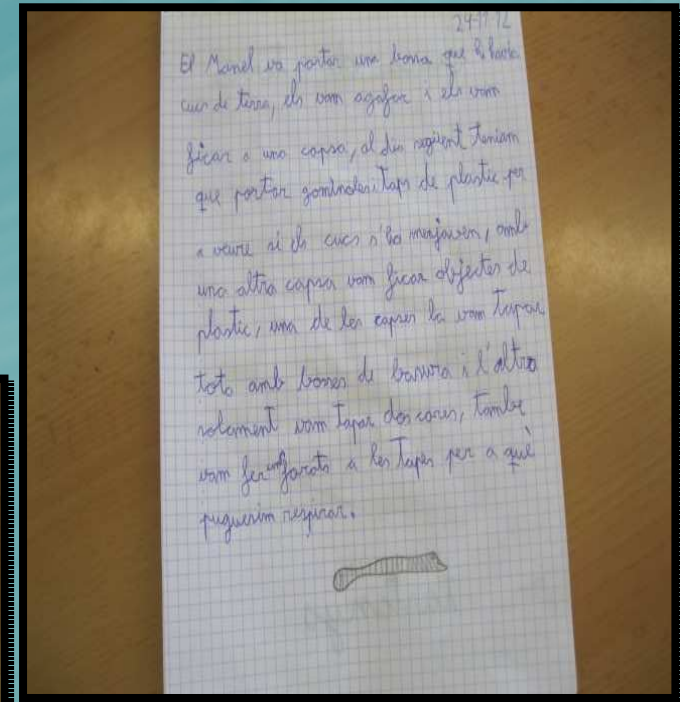 24-11-12
El Manel va portar una bossa que hi havia
cucs de terra, els vam agafar i els vam
ficar a una capsa, al dia següent teniam
que portar gominoles i taps de plastic per
a veure si els cucs s'ho menjaven, amb
una altra capsa vam ficar objectes de
plastic, una de les capses la vam tapar
tota amb bosses de basura i l'altra
solament vam tapar dos cares, tambe
vam fer uns forats a les tapes per a què
puguessim respirar.